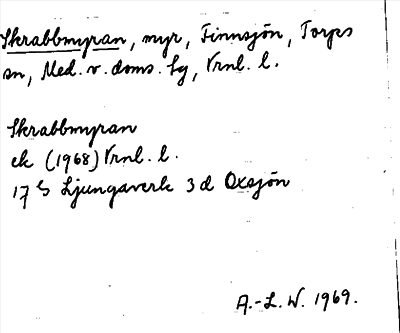 Skrabbmyran, myr, Finnsjön, Torps
sn, Med. v. doms. sg, Vrnl. l.
Skrabbmyran
ek (1968) Vrnl. l.
17 G Ljungaverk 3 d Oxsjön
A.-L. W. 1969.